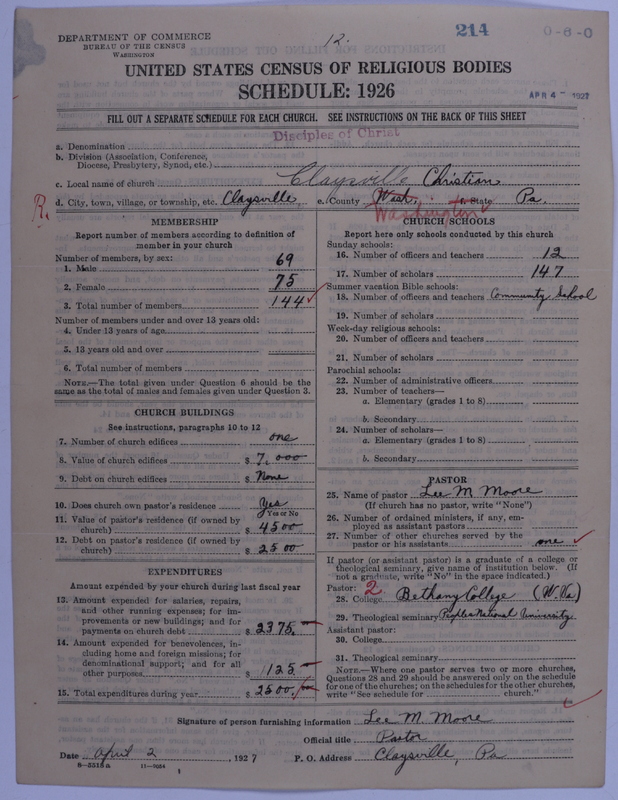 DEPARTMENT OF COMMERCE
BUREAU OF THE CENSUS
WASHINGTON
12.
214
0-6-0
UNITED STATES CENSUS OF RELIGIOUS BODIES
SCHEDULE: 1926
APR 4 1927
FILL OUT A SEPARATE SCHEDULE FOR EACH CHURCH. SEE INSTRUCTIONS ON THE BACK OF THIS SHEET
Disciples of Christ
a. Denomination
b. Division (Association, Conference, Diocese, Presbytery, Synod, etc.)
c. Local name of church Claysville Christian
R. d. City, town, village, or township, etc. Claysville e. County Wash. State Pa.
Washington
MEMBERSHIP
Report number of members according to definition of
member in your church
Number of members, by sex:
1. Male 69
2. Female 75
3. Total number of members 144
Number of members under and over 13 years old:
4. Under 13 years of age
5. 13 years old and over
6. Total number of members
NOTE.—The total given under Question 6 should be the
same as the total of males and females given under Question 3.
CHURCH BUILDINGS
See instructions, paragraphs 10 to 12
7. Number of church edifices one
8. Value of church edifices $ 7,000
9. Debt on church edifices $ None
10. Does church own pastor's residence Yes
Yes or No
11. Value of pastor's residence (if owned by
church) $ 4500
12. Debt on pastor's residence (if owned by
church) $ 2500
EXPENDITURES
Amount expended by your church during last fiscal year
13. Amount expended for salaries, repairs,
and other running expenses; for im-
provements or new buildings; and for
payments on church debt $ 2375.
14. Amount expended for benevolences, in-
cluding home and foreign missions; for
denominational support; and for all
other purposes $ 125.
15. Total expenditures during year $ 2500.
CHURCH SCHOOLS
Report here only schools conducted by this church
Sunday schools:
16. Number of officers and teachers 12
17. Number of scholars 147
Summer vacation Bible schools:
18. Number of officers and teachers Community School
19. Number of scholars
Week-day religious schools:
20. Number of officers and teachers
21. Number of scholars
Parochial schools:
22. Number of administrative officers
23. Number of teachers—
a. Elementary (grades 1 to 8)
b. Secondary
24. Number of scholars—
a. Elementary (grades 1 to 8)
b. Secondary
PASTOR
25. Name of pastor Lee M. Moore
(If church has no pastor, write "None")
26. Number of ordained ministers, if any, em-
ployed as assistant pastors
27. Number of other churches served by the
pastor or his assistants one
If pastor (or assistant pastor) is a graduate of a college or
theological seminary, give name of institution below. (If
not a graduate, write "No" in the space indicated.)
Pastor: 2.
28. College Bethany College (W. Va)
29. Theological seminary National University
Assistant pastor:
30. College
31. Theological seminary
NOTE.—Where one pastor serves two or more churches,
Questions 28 and 29 should be answered only on the schedule
for one of the churches; on the schedules for the other churches,
write "See schedule for church."
Signature of person furnishing information Lee M. Moore
Official title Pastor
Date April 2, 1927 P. O. Address Claysville, Pa
8-5515a 11-9664
1